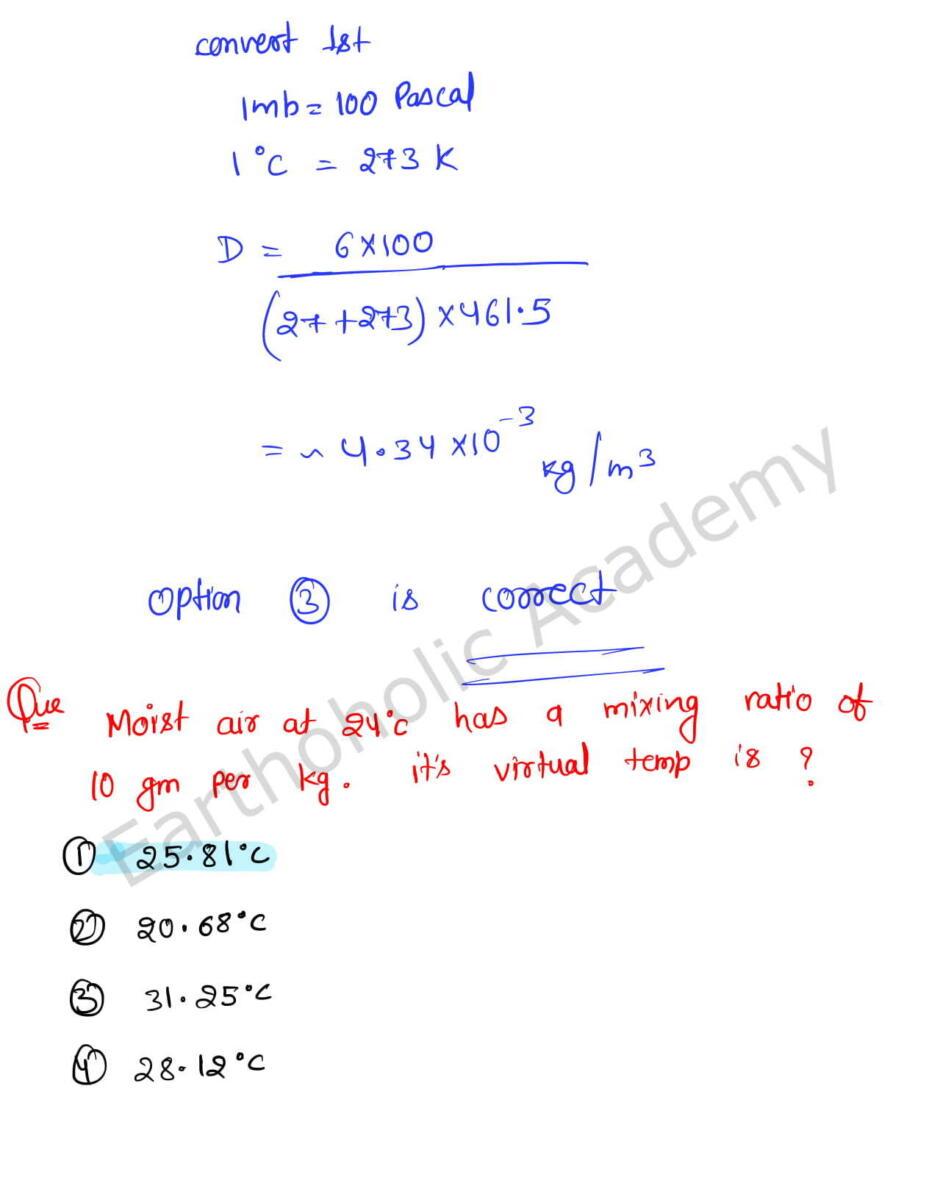 convert 1st
1mb = 100 Pascal
1°C = 273 K
D = 6×100
(27+273) ×461.5
= ~ 4.34 ×10⁻³ kg/m³
option ③ is correct
Que Moist air at 24°c has a mixing ratio of
10 gm per kg. it's virtual temp is ?
① 25.81°c
② 20.68°c
③ 31.25°c
④ 28.12°c
Earthoholic Academy